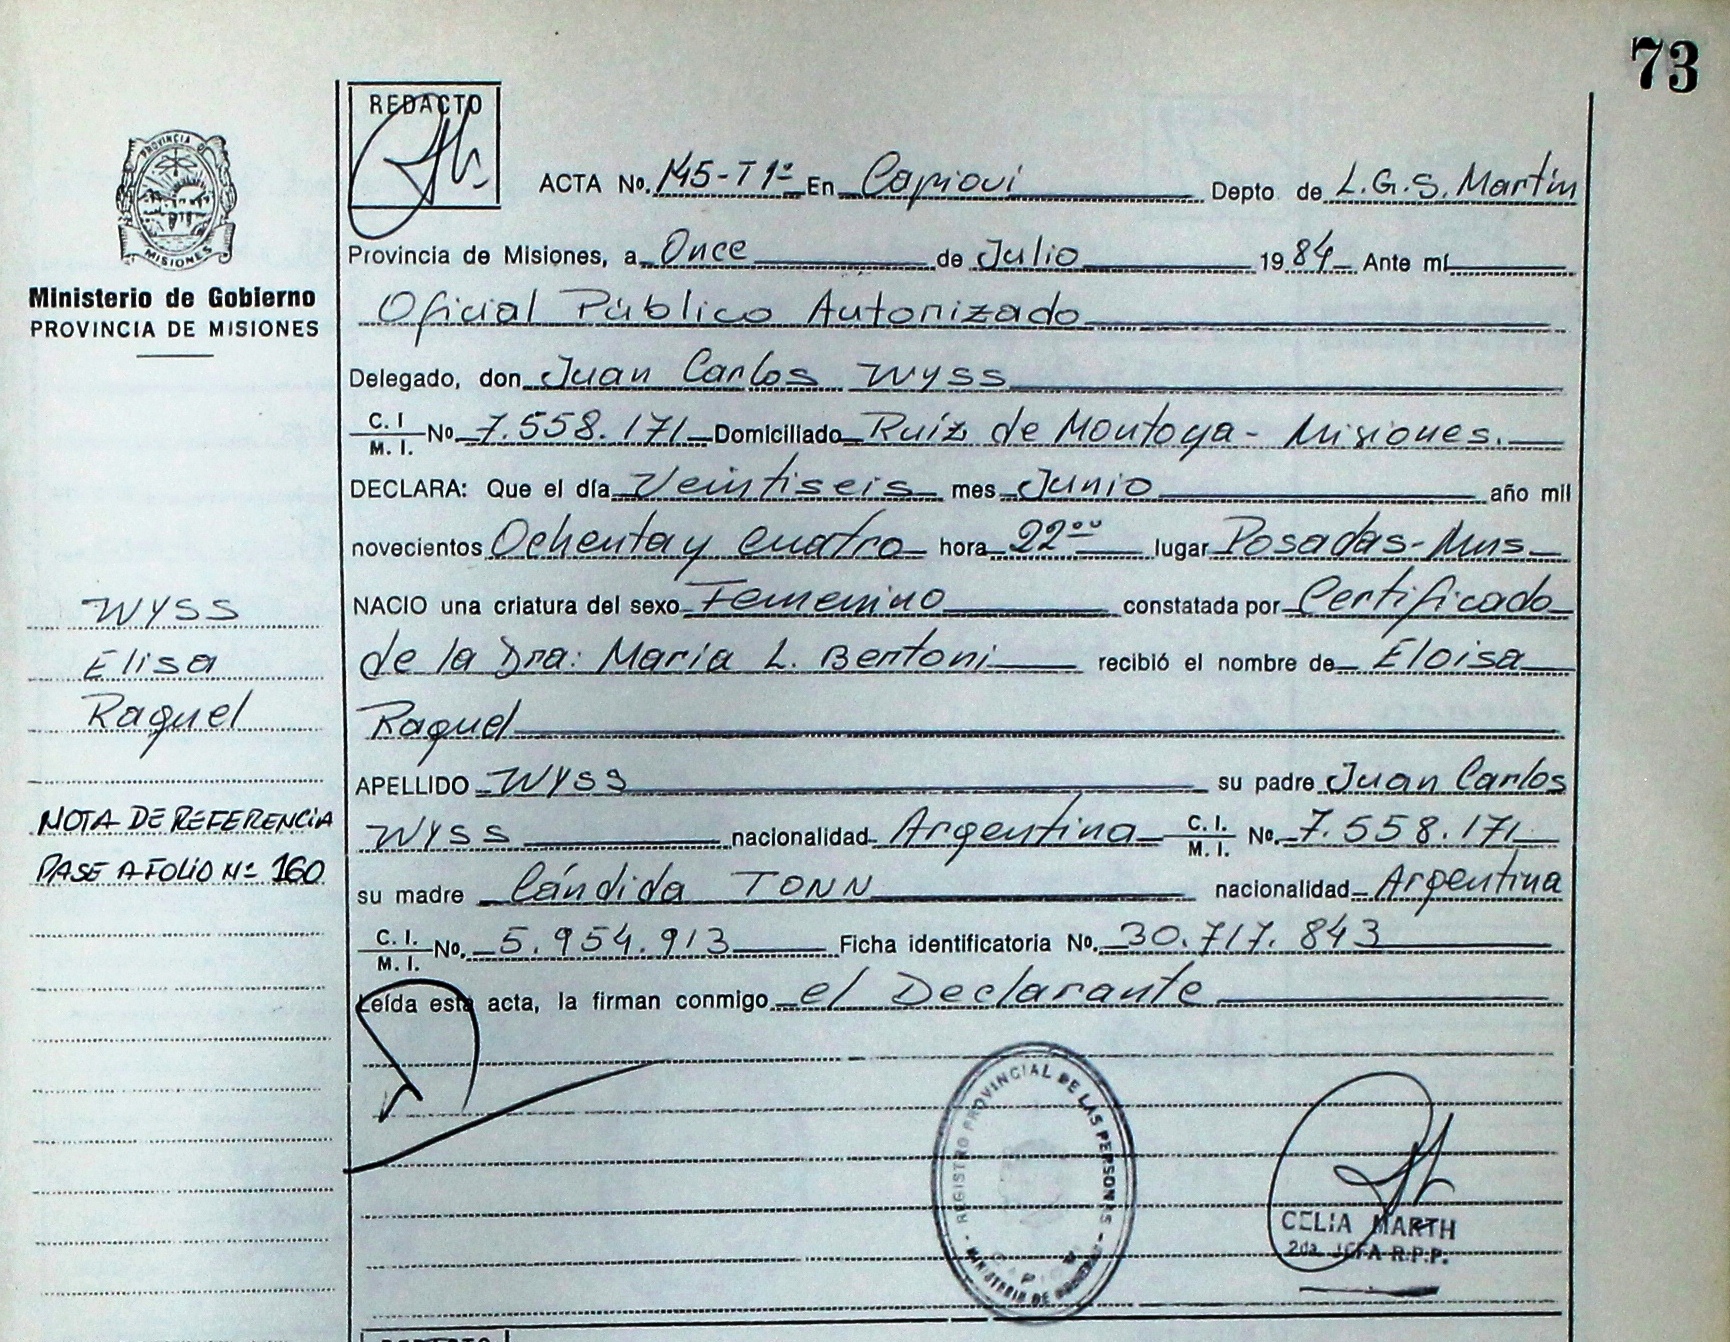 73
REDACTO
PROVINCIA DE
MISIONES
Ministerio de Gobierno
PROVINCIA DE MISIONES
ACTA No. 145-T1º En Capioví Depto. de L.G.S. Martín
Provincia de Misiones, a Once de Julio 1984 Ante mí
Oficial Público Autorizado
Delegado, don Juan Carlos WYSS
C. I. / M. I. No. 7.558.171 Domiciliado Ruíz de Montoya - Misiones.
DECLARA: Que el día Veintiseis mes Junio año mil
novecientos Ochenta y cuatro hora 22ºº lugar Posadas-Mnes
NACIO una criatura del sexo Femenino constatada por Certificado
de la Dra: María L. Bertoni recibió el nombre de Eloisa
Raquel
APELLIDO WYSS su padre Juan Carlos
WYSS nacionalidad Argentina C. I. / M. I. No. 7.558.171
su madre Cándida TONN nacionalidad Argentina
C. I. / M. I. No. 5.954.913 Ficha identificatoria No. 30.717.843
Leída esta acta, la firman conmigo el Declarante
WYSS
Elisa
Raquel
NOTA DE REFERENCIA
PASE A FOLIO Nº 160
REGISTRO PROVINCIAL DE LAS PERSONAS
MINISTERIO DE GOBIERNO
CELIA MARTH
2da. JEFA R.P.P.